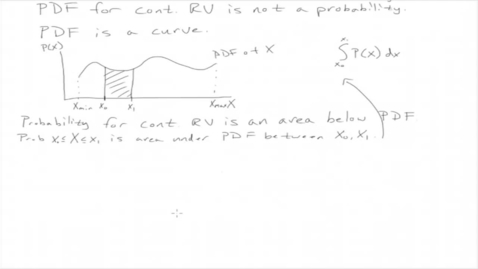 PDF for cont. RV is not a probability.
PDF is a curve.
P(x)
PDF of X
∫ P(x) dx
x₀
x₁
Xmin x₀ x₁ Xmax X
Probability for cont. RV is an area below PDF
Prob x₀ ≤ X ≤ x₁ is area under PDF between x₀, x₁.